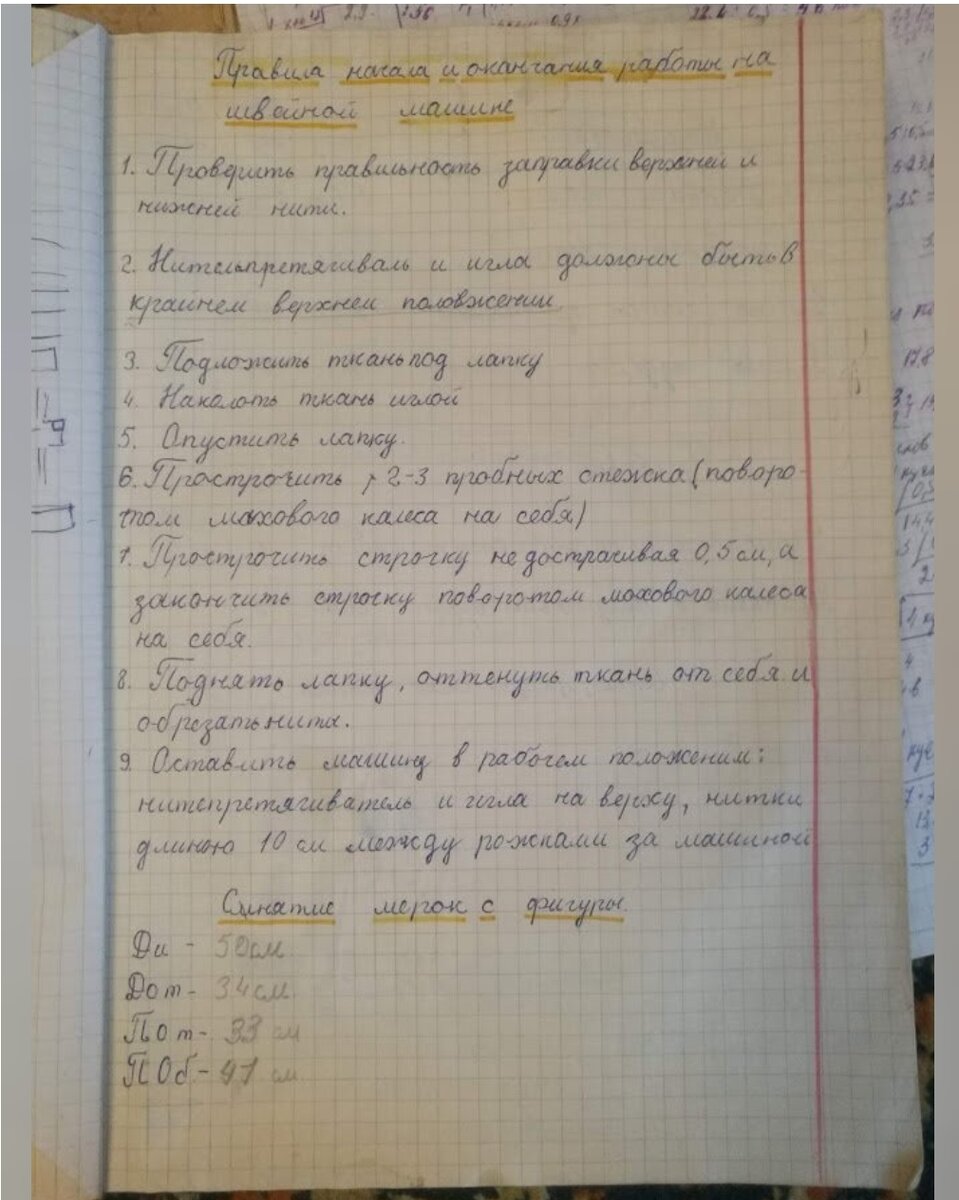 Правила начала и окончания работы на
швейной машине
1. Проверить правильность заправки верхней и
нижней нити.
2. Нительпретягиваль и игла должны быть в
крайнем верхнем половжении.
3. Подложить ткань под лапку
4. Наколоть ткань иглой
5. Опустить лапку.
6. Прострочить 2-3 пробных стежка (поворо-
том махового калеса на себя)
7. Прострочить строчку не дострачивая 0,5 см, а
закончить строчку поворотом махового калеса
на себя.
8. Поднять лапку, оттенуть ткань от себя и
обрезать нити.
9. Оставить машину в рабочем положении:
нитепретягиватель и игла на верху, нитки
длиною 10 см между рожками за машиной
Снятие мерок с фигуры.
Ди - 50 см
Дот - 34 см
ПОт - 33 см
ПОб - 41 см